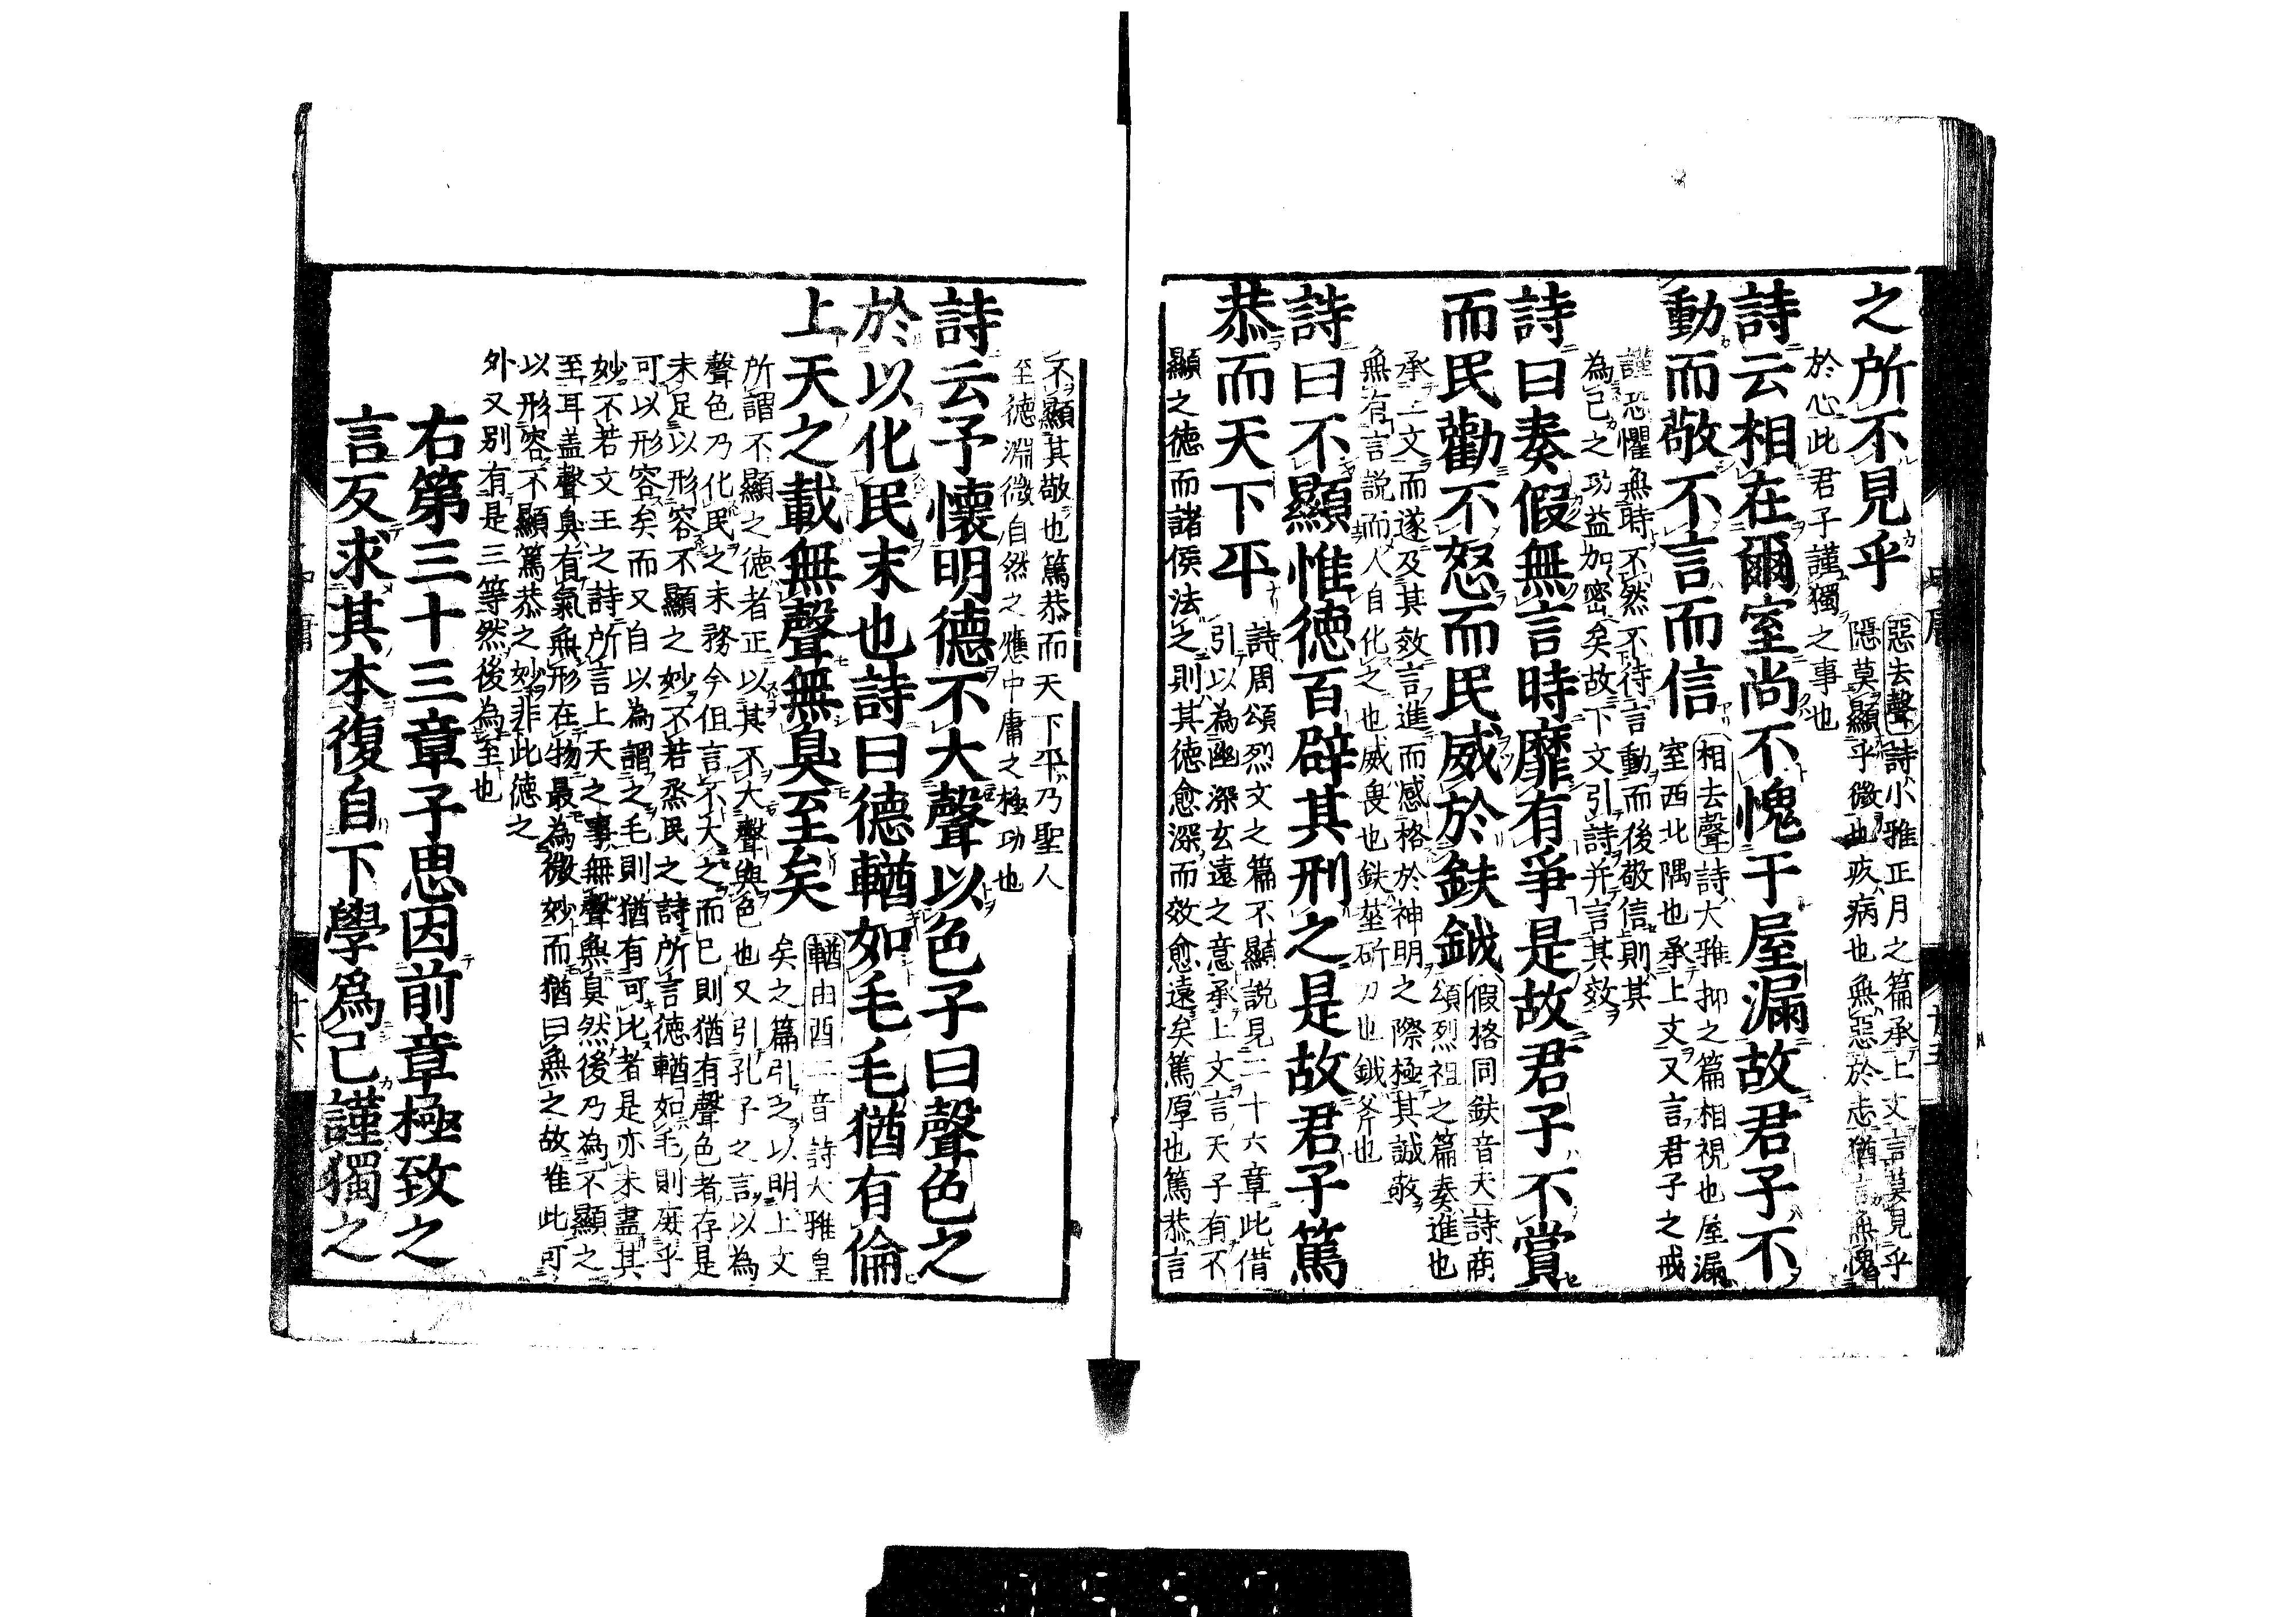 之所不見乎
惡去聲詩小雅正月之篇承上文言莫見乎
隱莫顯乎微也疚病也無惡於志猶言無愧
於心此君子謹獨之事也
詩云相在爾室尚不愧于屋漏故君子不
動而敬不言而信
相去聲詩大雅抑之篇相視也屋漏
室西北隅也承上文又言君子之戒
謹恐懼無時不然不待言動而後敬信則其
為己之功益加密矣故下文引詩并言其效
詩曰奏假無言時靡有爭是故君子不賞
而民勸不怒而民威於鈇鉞
假格同鈇音夫詩商
頌烈祖之篇奏進也
承上文而遂及其效言進而感格於神明之際極其誠敬
無有言說而人自化之也威畏也鈇莝斫刀也鉞斧也
詩曰不顯惟德百辟其刑之是故君子篤
恭而天下平
詩周頌烈文之篇不顯說見二十六章此借
引以為幽深玄遠之意承上文言天子有不
顯之德而諸侯法之則其德愈深而效愈遠矣篤厚也篤恭言
不顯其敬也篤恭而天下平乃聖人
至德淵微自然之應中庸之極功也
詩云予懷明德不大聲以色子曰聲色之
於以化民末也詩曰德輶如毛毛猶有倫
上天之載無聲無臭至矣
輶由酉二音詩大雅皇
矣之篇引之以明上文
所謂不顯之德者正以其不大聲與色也又引孔子之言以為
聲色乃化民之末務今但言不大之而已則猶有聲色者存是
未足以形容不顯之妙不若烝民之詩所言德輶如毛則庶乎
可以形容矣而又自以為謂之毛則猶有可比者是亦未盡其
妙不若文王之詩所言上天之事無聲無臭然後乃為不顯之
至耳盖聲臭有氣無形在物最為微妙而猶曰無之故惟此可
以形容不顯篤恭之妙非此德之
外又別有是三等然後為至也
右第三十三章子思因前章極致之
言反求其本復自下學爲己謹獨之